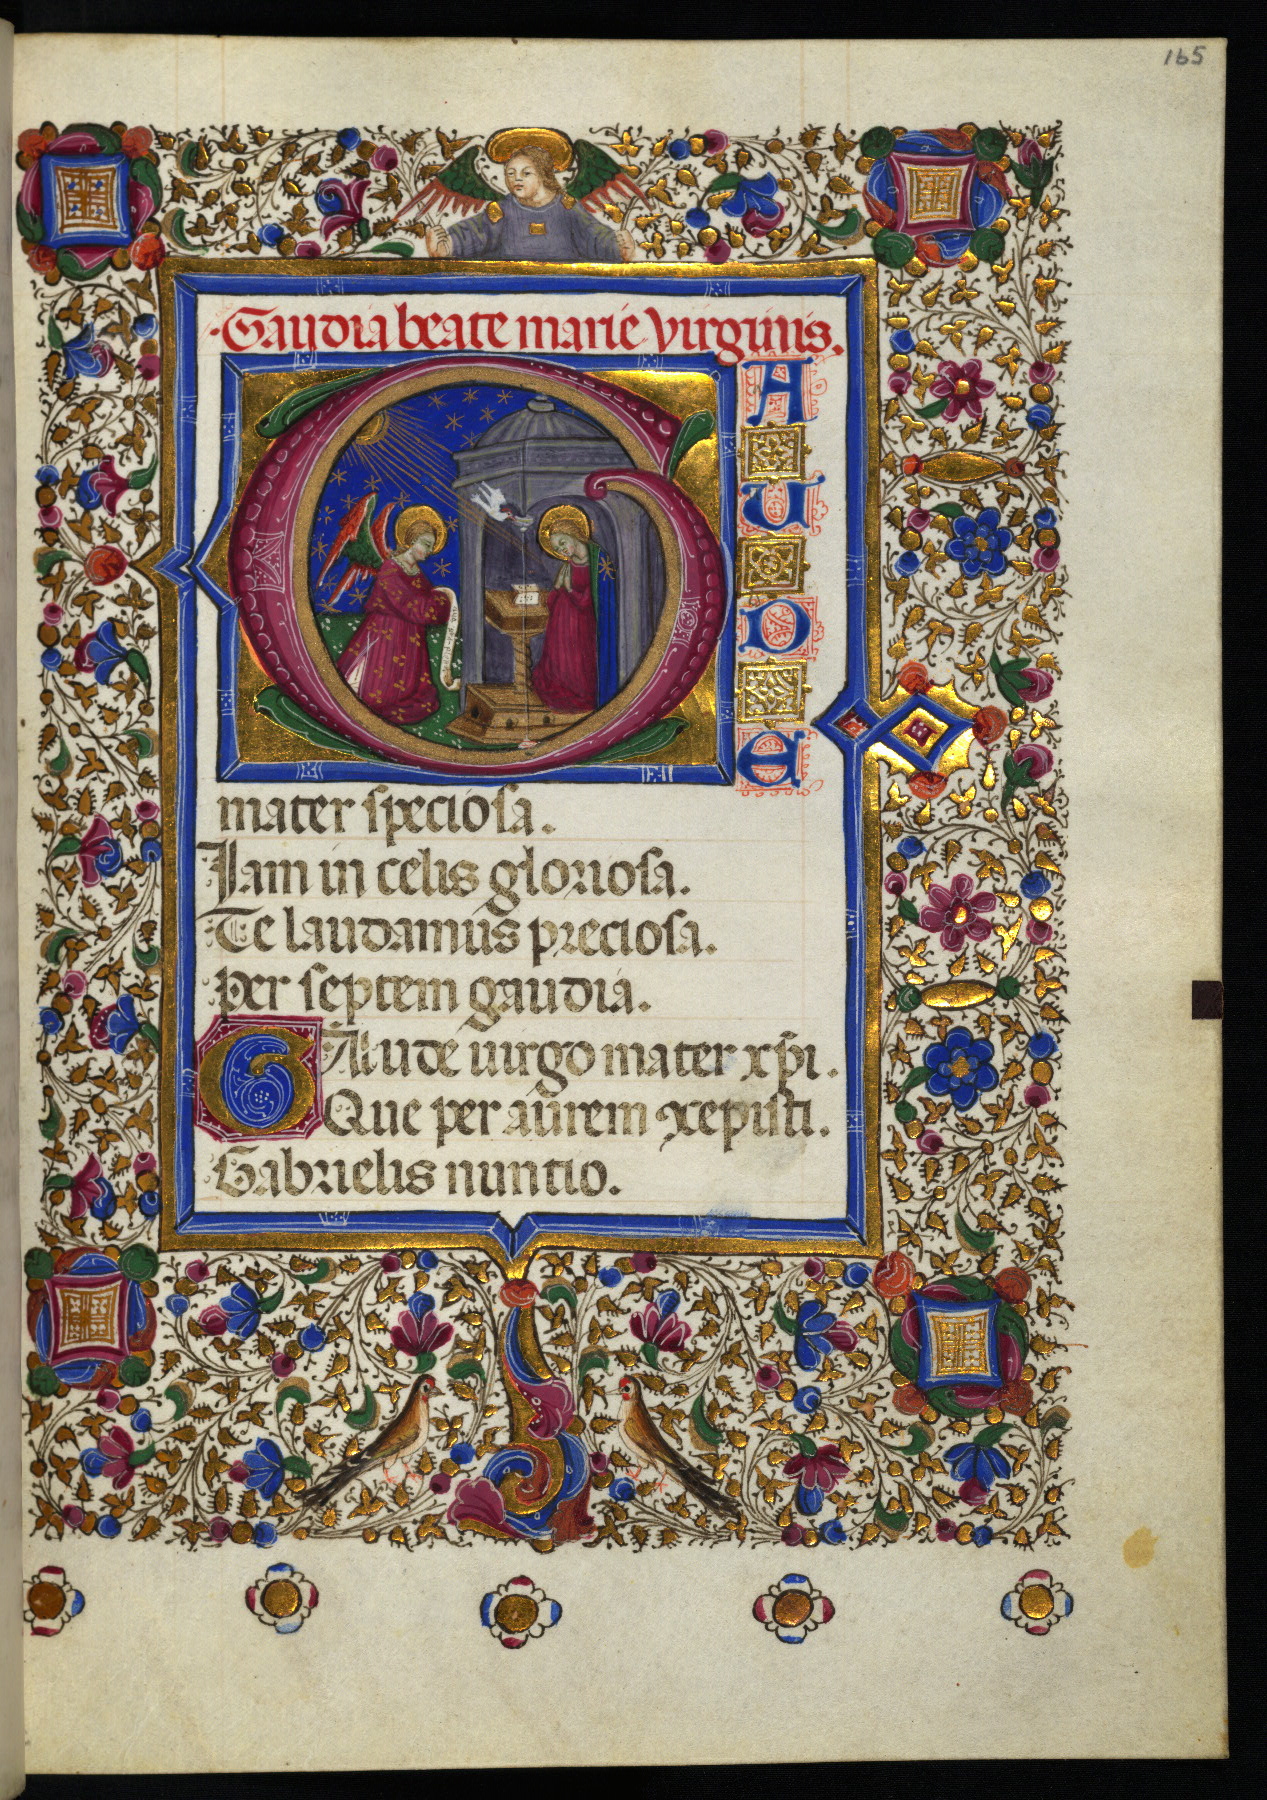 165
Gaudia beate marie virginis.
GAUDE
mater speciosa.
Iam in celis gloriosa.
Te laudamus preciosa.
per septem gaudia.
GAude uirgo mater xp̄i.
Que per aurem ꝯcepisti.
Gabrielis nuntio.